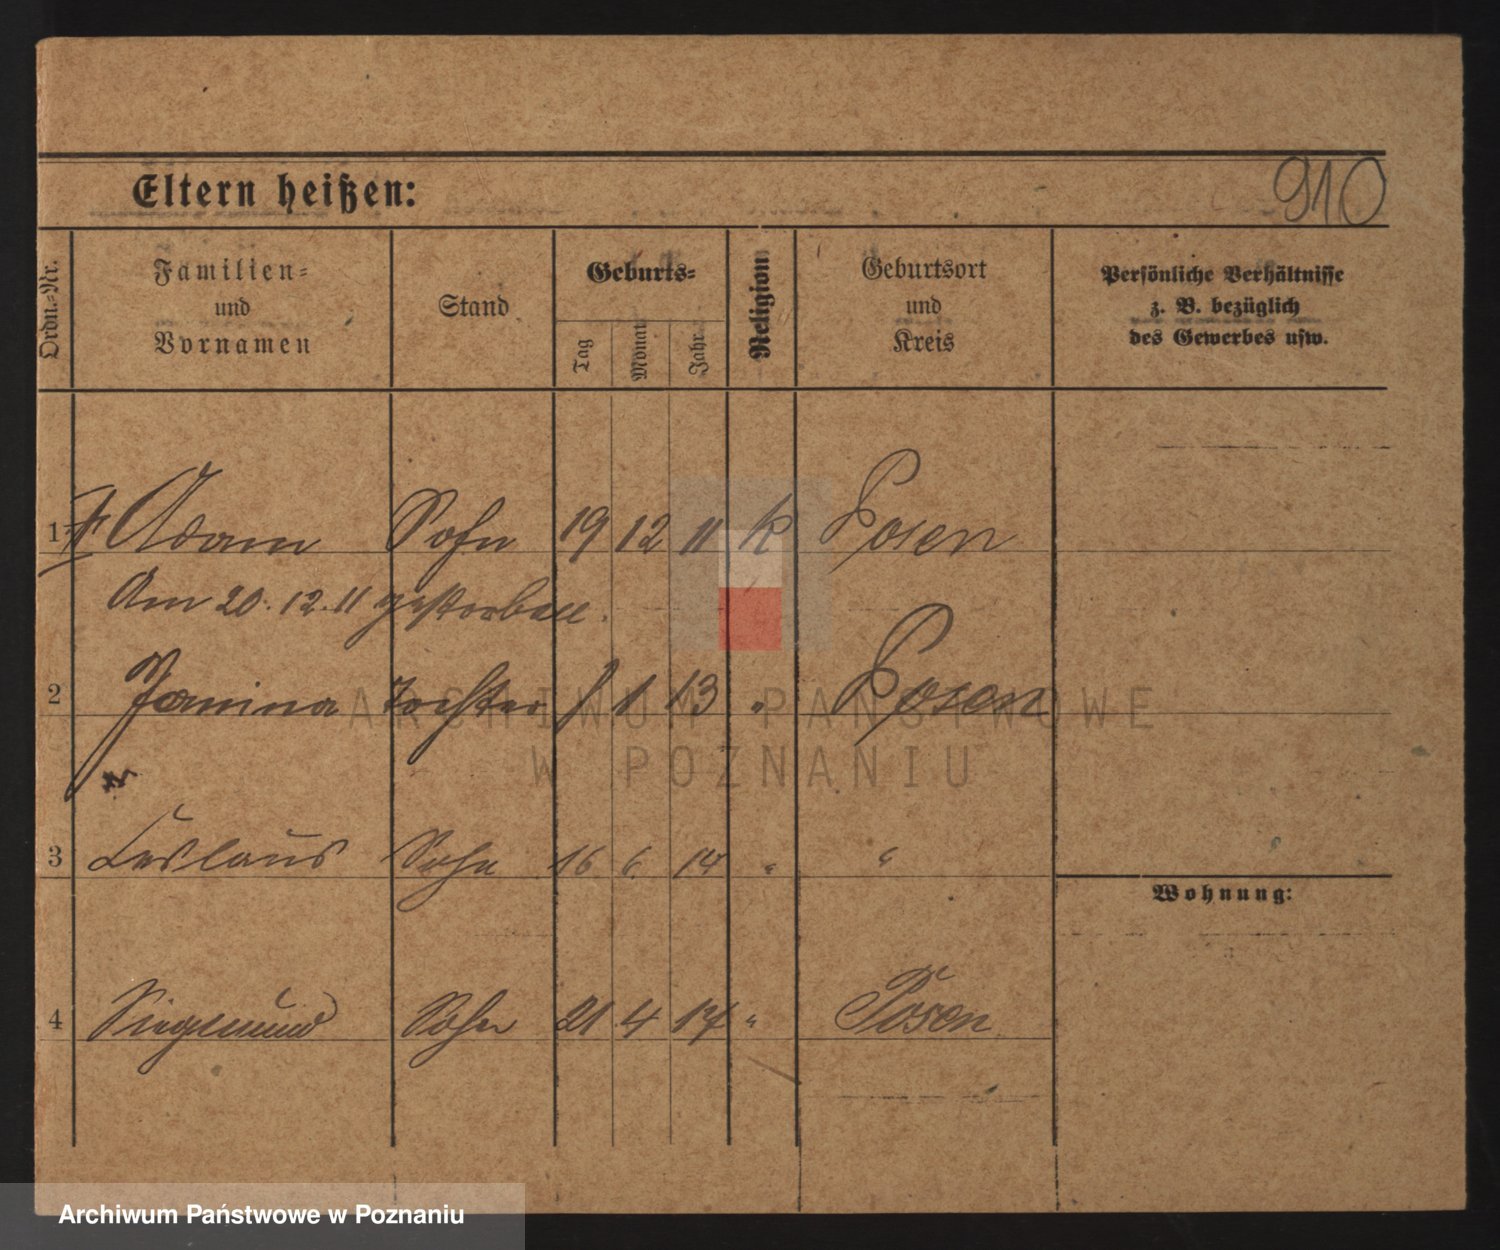 910
Eltern heißen:
Ordn.-Nr.
Familien-
und
Vornamen
Stand
Geburts-
Tag
Monat
Jahr
Religion
Geburtsort
und
Kreis
Persönliche Verhältnisse
z. B. bezüglich
des Gewerbes usw.
1 † Adam Sohn 19 12 11 k Posen
Am 20.12.11 gestorben.
2 Janina Tochter 1 13 " Posen
3 Ceslaus Sohn 16 6. 14 " "
Wohnung:
4 Siegmund Sohn 21 4 17 " Posen
ARCHIWUM PAŃSTWOWE
W POZNANIU
Archiwum Państwowe w Poznaniu